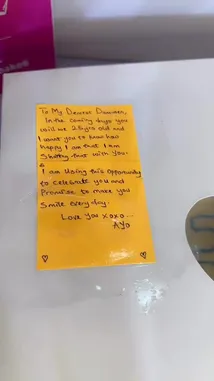 To My Dearest Damilen,
In the coming days you
will be 25yrs old and
I want you to know how
happy I am that I am
Sharing that with you.
I am using this Opportunity
to Celebrate you and
Promise to make you
Smile everyday.
Love you xoxo...
Ayo